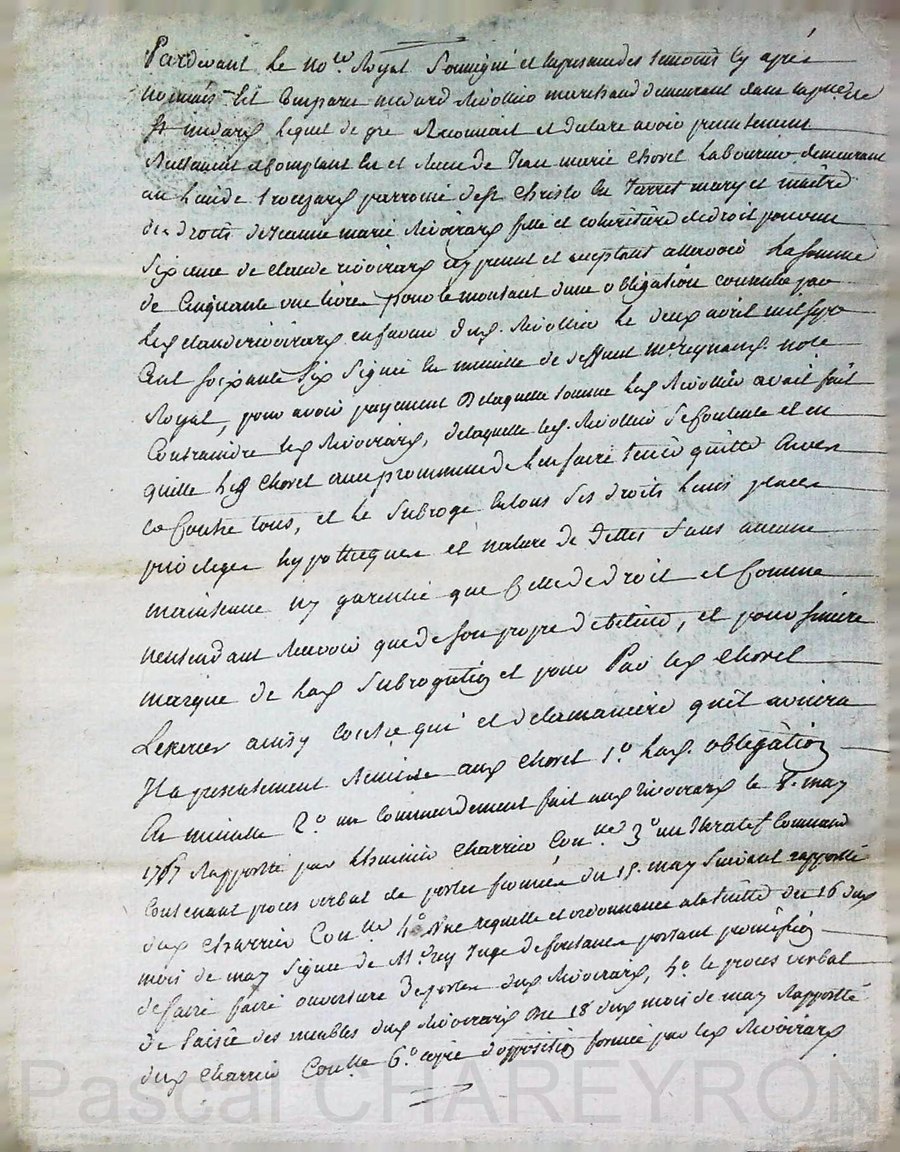 Pardevant le no.re Royal soussigné et en presence des temoins cy aprés
nommés est comparu medard Revollier marchand demeurant dans la p.sse de
St medard lequel de gré Reconnait et declare avoir presentement
Reellement et comptant eu et Receu de Jean marie chovet Laboureur demeurant
au lieu de parroisse de st christo en Jarret mary et maitre
des droits de jeanne marie Rivoirard fille et coheritiere de droit pour un
sixieme de claude rivoirard cy present et acceptant a savoir La somme
de Cinquante une livres pour le montant d'une obligation consentie par
led claude rivoirard en faveur dud. Revollier le deux avril mil sept
Cent soixante six signée en minutte de deffunt Mr Reynaud note
Royal, pour avoir payement de laquelle somme led Revollier avait fait
contraindre led Rivoirard, de laquelle led. Revollier se contente et en
quitte led chovet avec promesse de l'en faire tenir quitte envers
et Contre tous, et le subroge en tous ses droits lieux places
privileges hypotheques et nature de dettes sans aucune
maintenue ny garentie que celle de droit et comme
n'entendant Recevoir que de son propre debiteur, et pour sincere
marque de lad subrogation et pour Par led chovet
L'exercer ainsy contre qui et de la maniere qu'il avisera
Il a presentement Remis aud chovet 1.o lad. obligation
En minutte 2.o un commendement fait aud rivoirard le 8. may
1767 Rapporté par L'huissier charrier Con.lle 3.o un Iteratif Command
contenant proces verbal de portes fermées du 15. may suivant rapporté
dud charrier Con.lle 4.o Une requette et ordonnance a la suitte du 16 dud
mois de may signée de Mr Rey Juge de fontanes portant permission
de faire faire ouverture de portes dud Rivoirard, 5.o le proces verbal
de saisie des meubles dud Rivoirard du 18 dud mois de may Rapporté
dud charrier Con.lle 6.o copie d'opposition formée par led Rivoirard
Pascal CHAREYRON